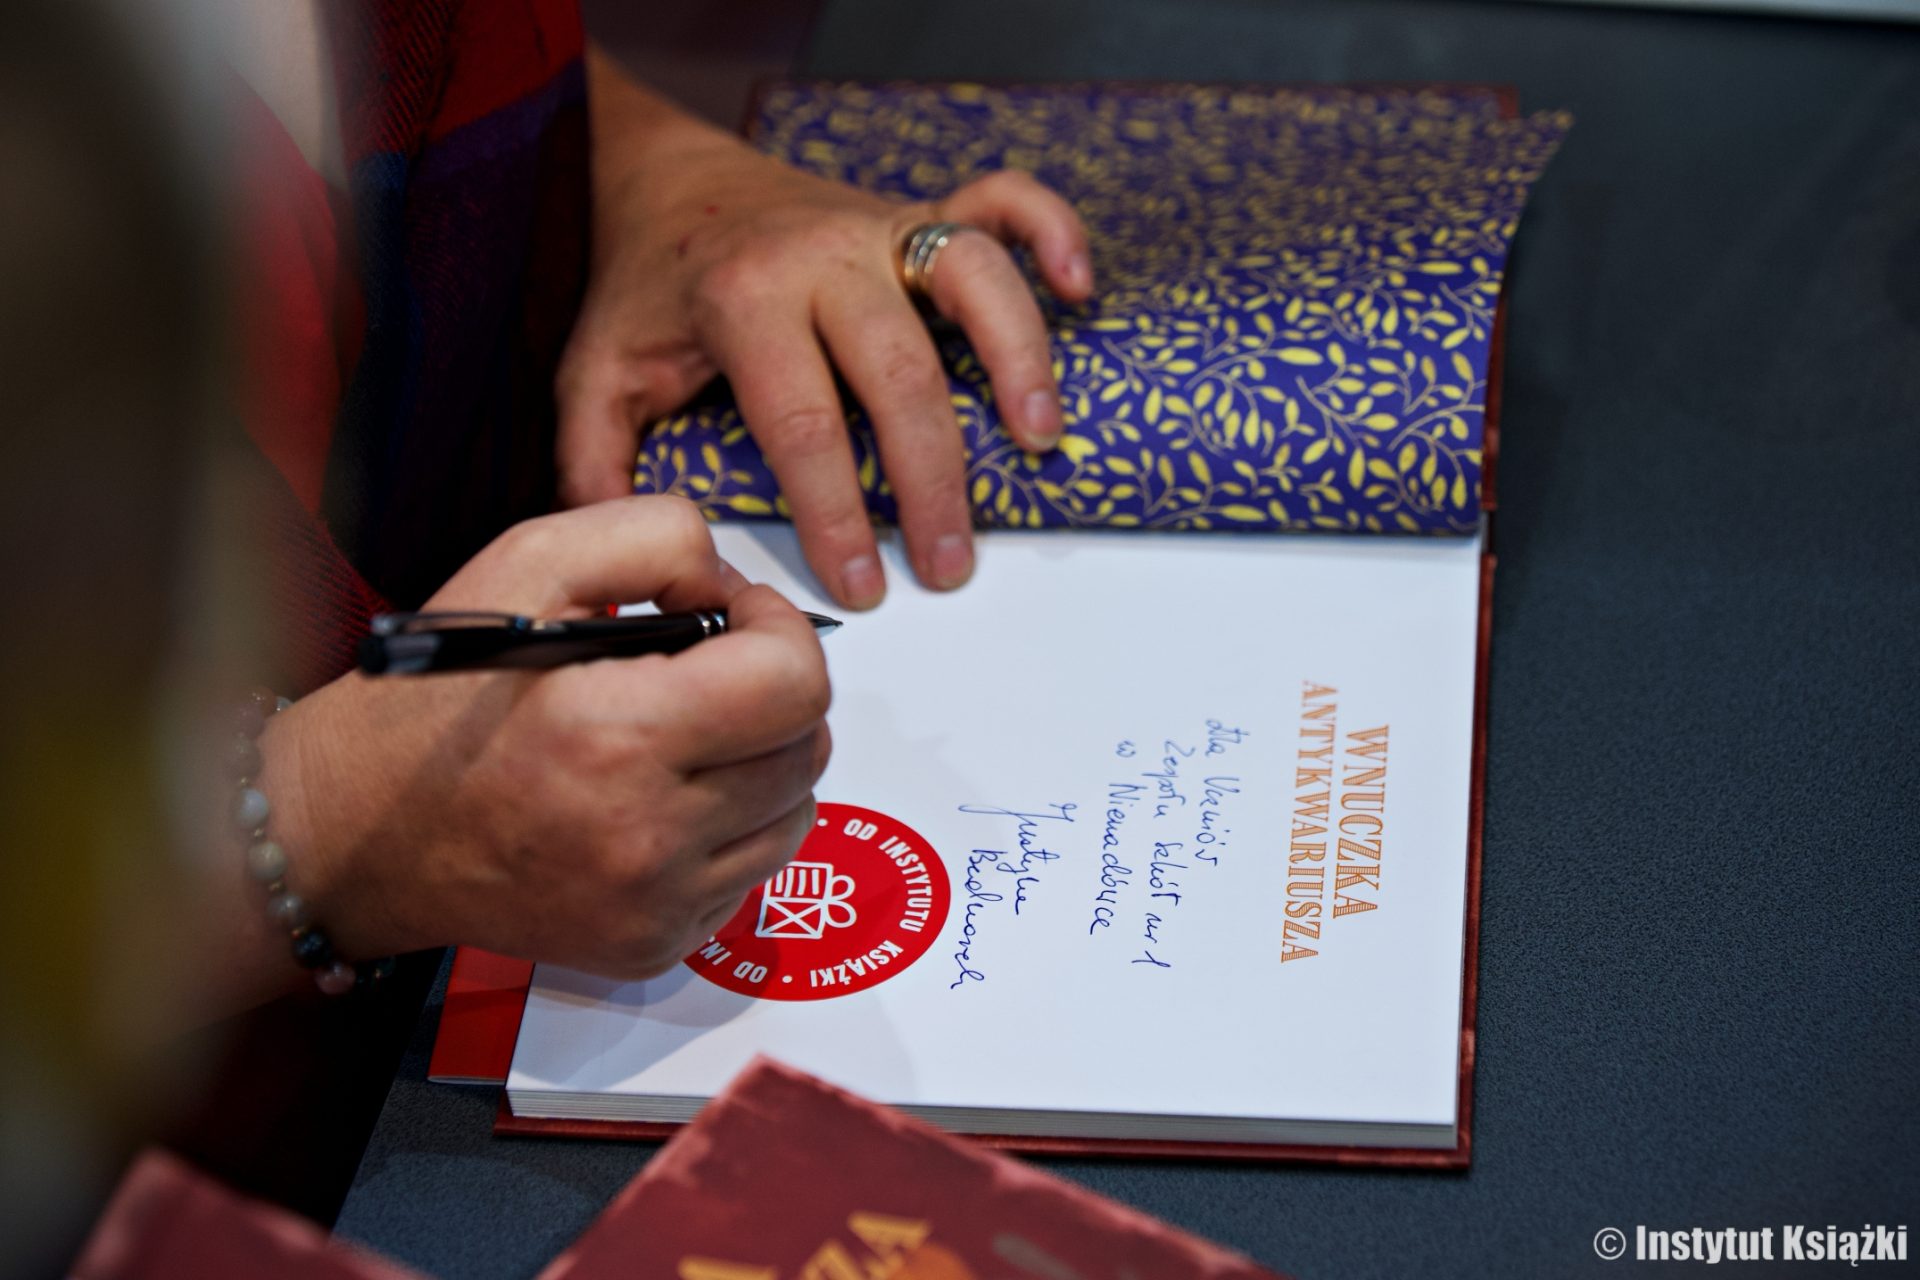 WNUCZKA
ANTYKWARIUSZA
dla Uczniów
Zespołu Szkół nr 1
w Nienadówce
Justyna
Bednarek
OD INSTYTUTU KSIĄŻKI • OD INS
ZA
© Instytut Książki